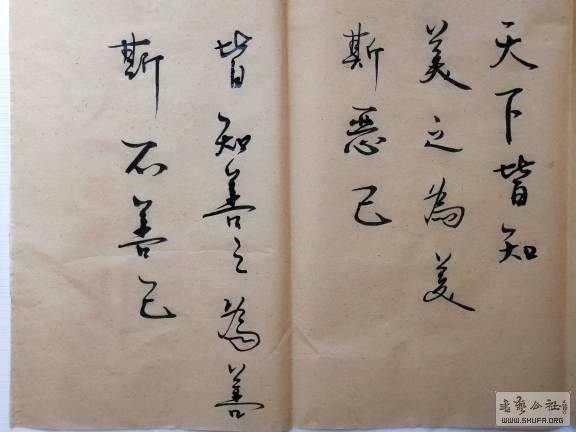 天下皆知
美之為美
斯惡已
皆知善之為善
斯不善已
WWW.SHUFA.ORG